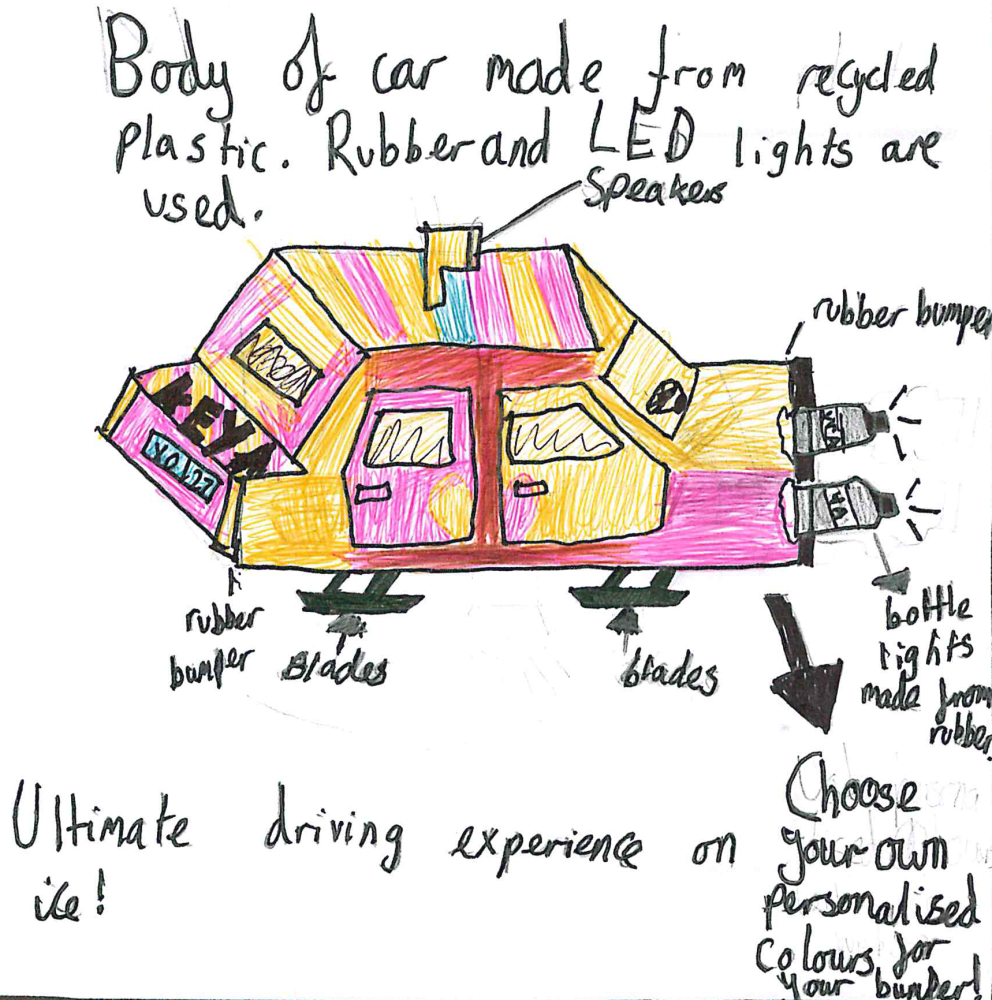 Body of car made from recycled
plastic. Rubber and LED lights are
used.
Speakers
rubber bumper
KEYA
rubber
bumper
Blades
blades
bottle
lights
made from
rubber.
Ultimate driving experience on
ice!
Choose
your own
personalised
colours for
your bumper!